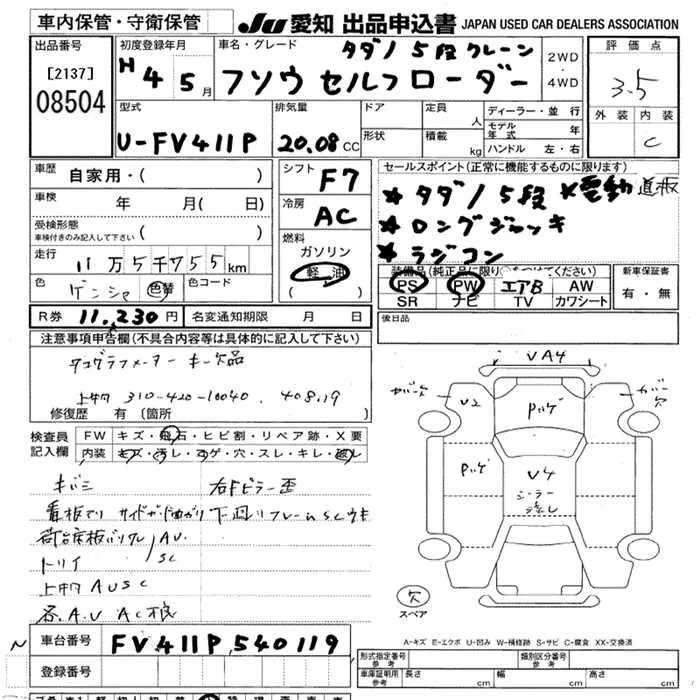 車内保管・守衛保管
JU 愛知 出品申込書 JAPAN USED CAR DEALERS ASSOCIATION
出品番号
[2137]
08504
初度登録年月
H 4 5月
車名・グレード
タダノ 5段クレーン
フソウ セルフローダー
2WD
・
4WD
評価点
3.5
外装 内装
C
型式
U-FV411P
排気量
20.08 CC
ドア
形状
定員 人
積載 kg
ディーラー・並行
モデル年式 年
ハンドル 左・右
車歴
自家用・( )
車検
年 月( 日)
受検形態
車検付きのみ記入して下さい ( )
走行
11万5千755km
色
ゲンシャ 色替
色コード
シフト
F7
冷房
AC
燃料
ガソリン
軽油
( )
セールスポイント(正常に機能するものに限ります)
★タダノ5段 ★電動道板
★ロングジャッキ
★ラジコン
装備品(純正品に限り てください)
PS PW エアB AW
SR ナビ TV カワシート
新車保証書
有・無
R券 11,230円
名変通知期限 月 日
後日品
注意事項申告欄(不具合内容等は具体的に記入して下さい)
タコグラフメーター キー欠品
上物 310-420-10040. 408.19
修復歴 有(箇所 )
検査員
記入欄
FW キズ・飛石・ヒビ割・リペア跡・X要
内装 キズ・汚レ・コゲ・穴・スレ・キレ・
キバミ 右Fピラー歪
看板でり 下回りフレームSCウキ
AU
トリイ SC
上物AUSC
各A.U AC不良
VA4
カバー欠
U2
Pハゲ
カバー欠
Pハゲ
V4
シーラー
欠
スペア
A-キズ E-エクボ U-凹み W-補修跡 S-サビ C-腐食 XX-交換済
車台番号 FV411P 540119
登録番号
形式指定番号 参考
類別区分番号 参考
車庫証明用 参考
長さ cm 幅 cm 高さ cm